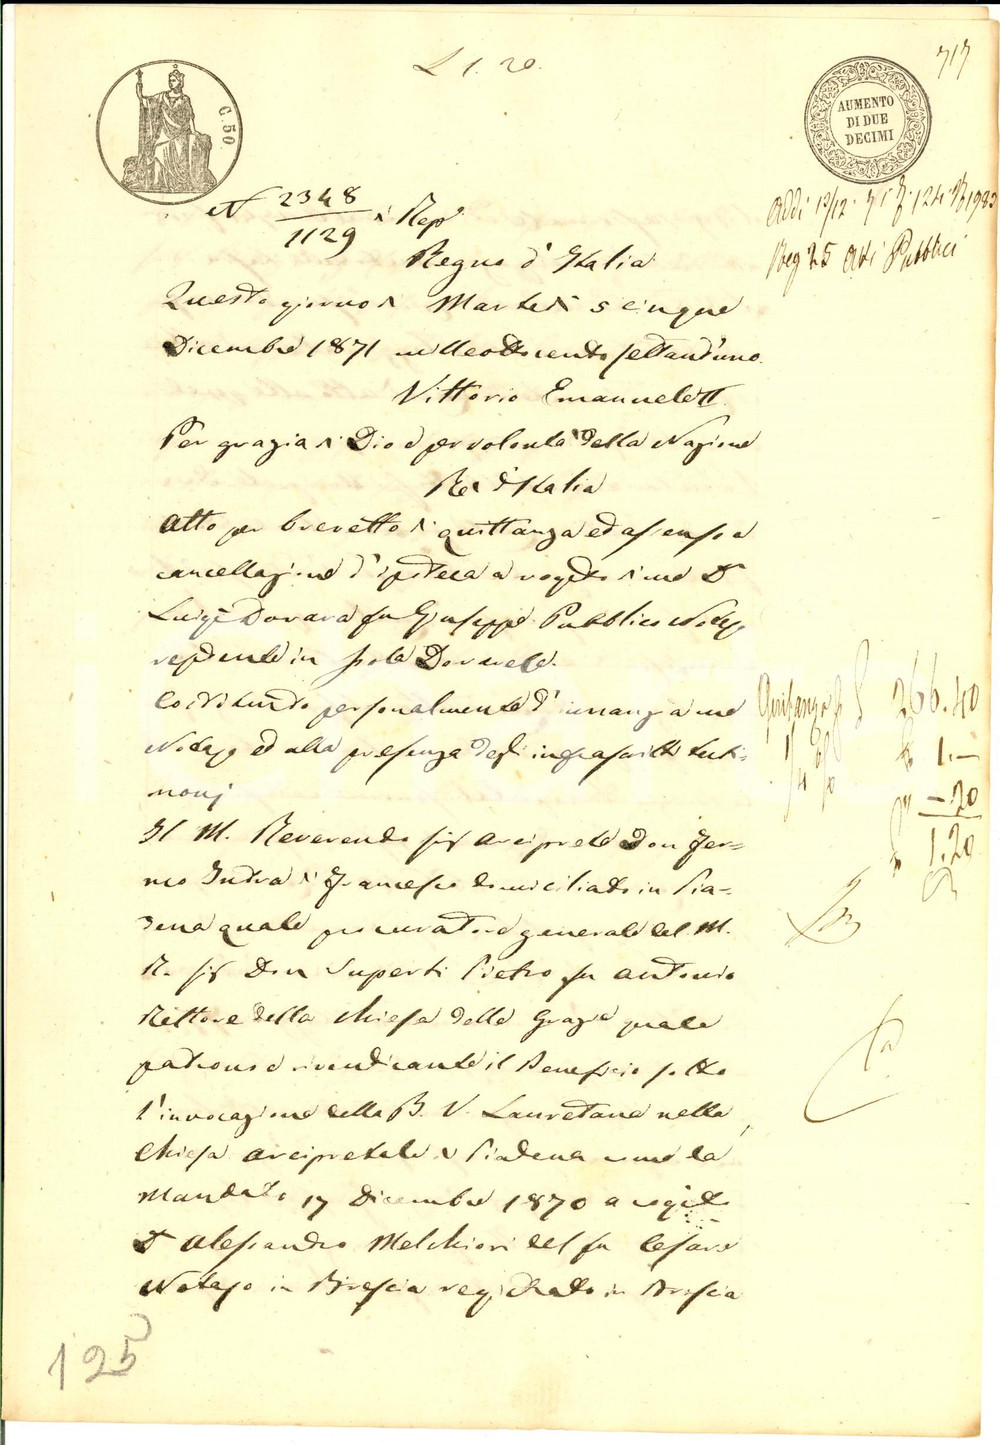 L 1. 20.
717
C. 50
AUMENTO
DI DUE
DECIMI
N 2348 / 1129 di Rep°
Addi 13/12 71 f. 124 N 1983
Reg 25 Atti Pubblici
Regno d'Italia
Questo giorno di Martedì 5 cinque
Dicembre 1871 milleottocento settant'uno.
Vittorio Emanuele II
Per grazia di Dio e per volontà della Nazione
Re d'Italia
Atto per brevetto di quittanza ed assenso a
cancellazione d'ipoteca a rogito di me Dr
Luigi Dovara fu Giuseppe Pubblico Notajo
residente in Isola Dovarese.
Costituendo personalmente d'innanzi a me
Notajo ed alla presenza degli infrascritti testi-
monj
Quitanza L 266.40
1.—
—.20
1.20
Il M. Reverendo Sigr Arciprete Don Fer-
mo di Francesco domiciliato in Pia-
dena quale procuratore generale del M.
R. Sigr Don Superti Pietro fu Antonio
Rettore della Chiesa delle Grazie quale
patrono e rivendicante il Beneficio sotto
l'invocazione della B. V. Lauretana nella
Chiesa Arcipretale di Piadena come da
Mandato 17 Dicembre 1870 a rogito
Dr Alessandro Melchiori del fu Cesare
Notajo in Brescia registrato in Brescia
125